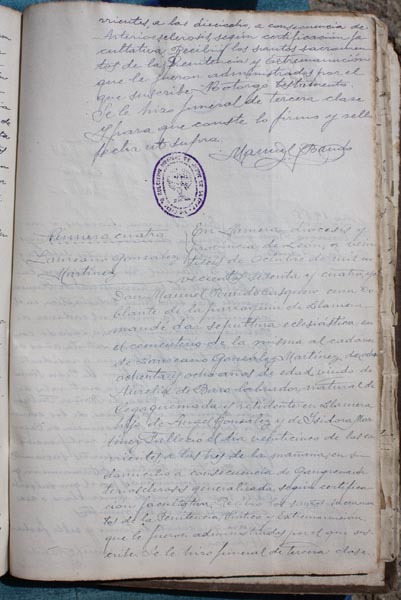 rrientes a las dieciocho, a consecuencia de
Arteriosclerosis, según certificación fa
cultativa. Recibió los santos sacramen
tos de la Penitencia y Extremaunción
que le fueron administrados por el
que suscribe. No otorgó testamento.
Se le hizo funeral de tercera clase.
Y para que conste lo firmo y sello
fecha ut supra.
Manuel
Número cuatro
Laureano González
Martínez
En Llamera, diócesis y
provincia de León, a
de Octubre de mil no
vecientos sesenta y cuatro, yo
Don Manuel cura Eco
de la parroquia de Llamera,
mandé dar sepultura eclesiástica en
el cementerio de la misma al cadáver
de Laureano González Martínez, de
ochenta y ocho años de edad, viudo de
de Baro, labrador, natural de
y residente en Llamera
hijo de Ángel González y de Isidora Mar
tínez. Falleció el día veintiuno de los co
rrientes a las tres de la mañana, en su
domicilio a consecuencia de Gangrena
generalizada según certifica
ción facultativa. Recibió los santos sacramen
tos de la Penitencia, Viático y Extremaunción
que le fueron administrados por el que sus
cribe. Se le hizo funeral de tercera clase.